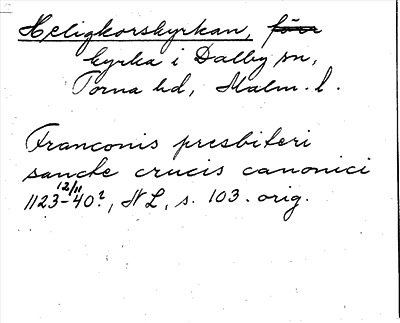 Heligkorskyrkan, förr
kyrka i Dalby sn,
Torna hd, Malm. l.
Franconis presbiteri
sancte crucis canonici
12/11
1123-40?, NL, s. 103. orig.